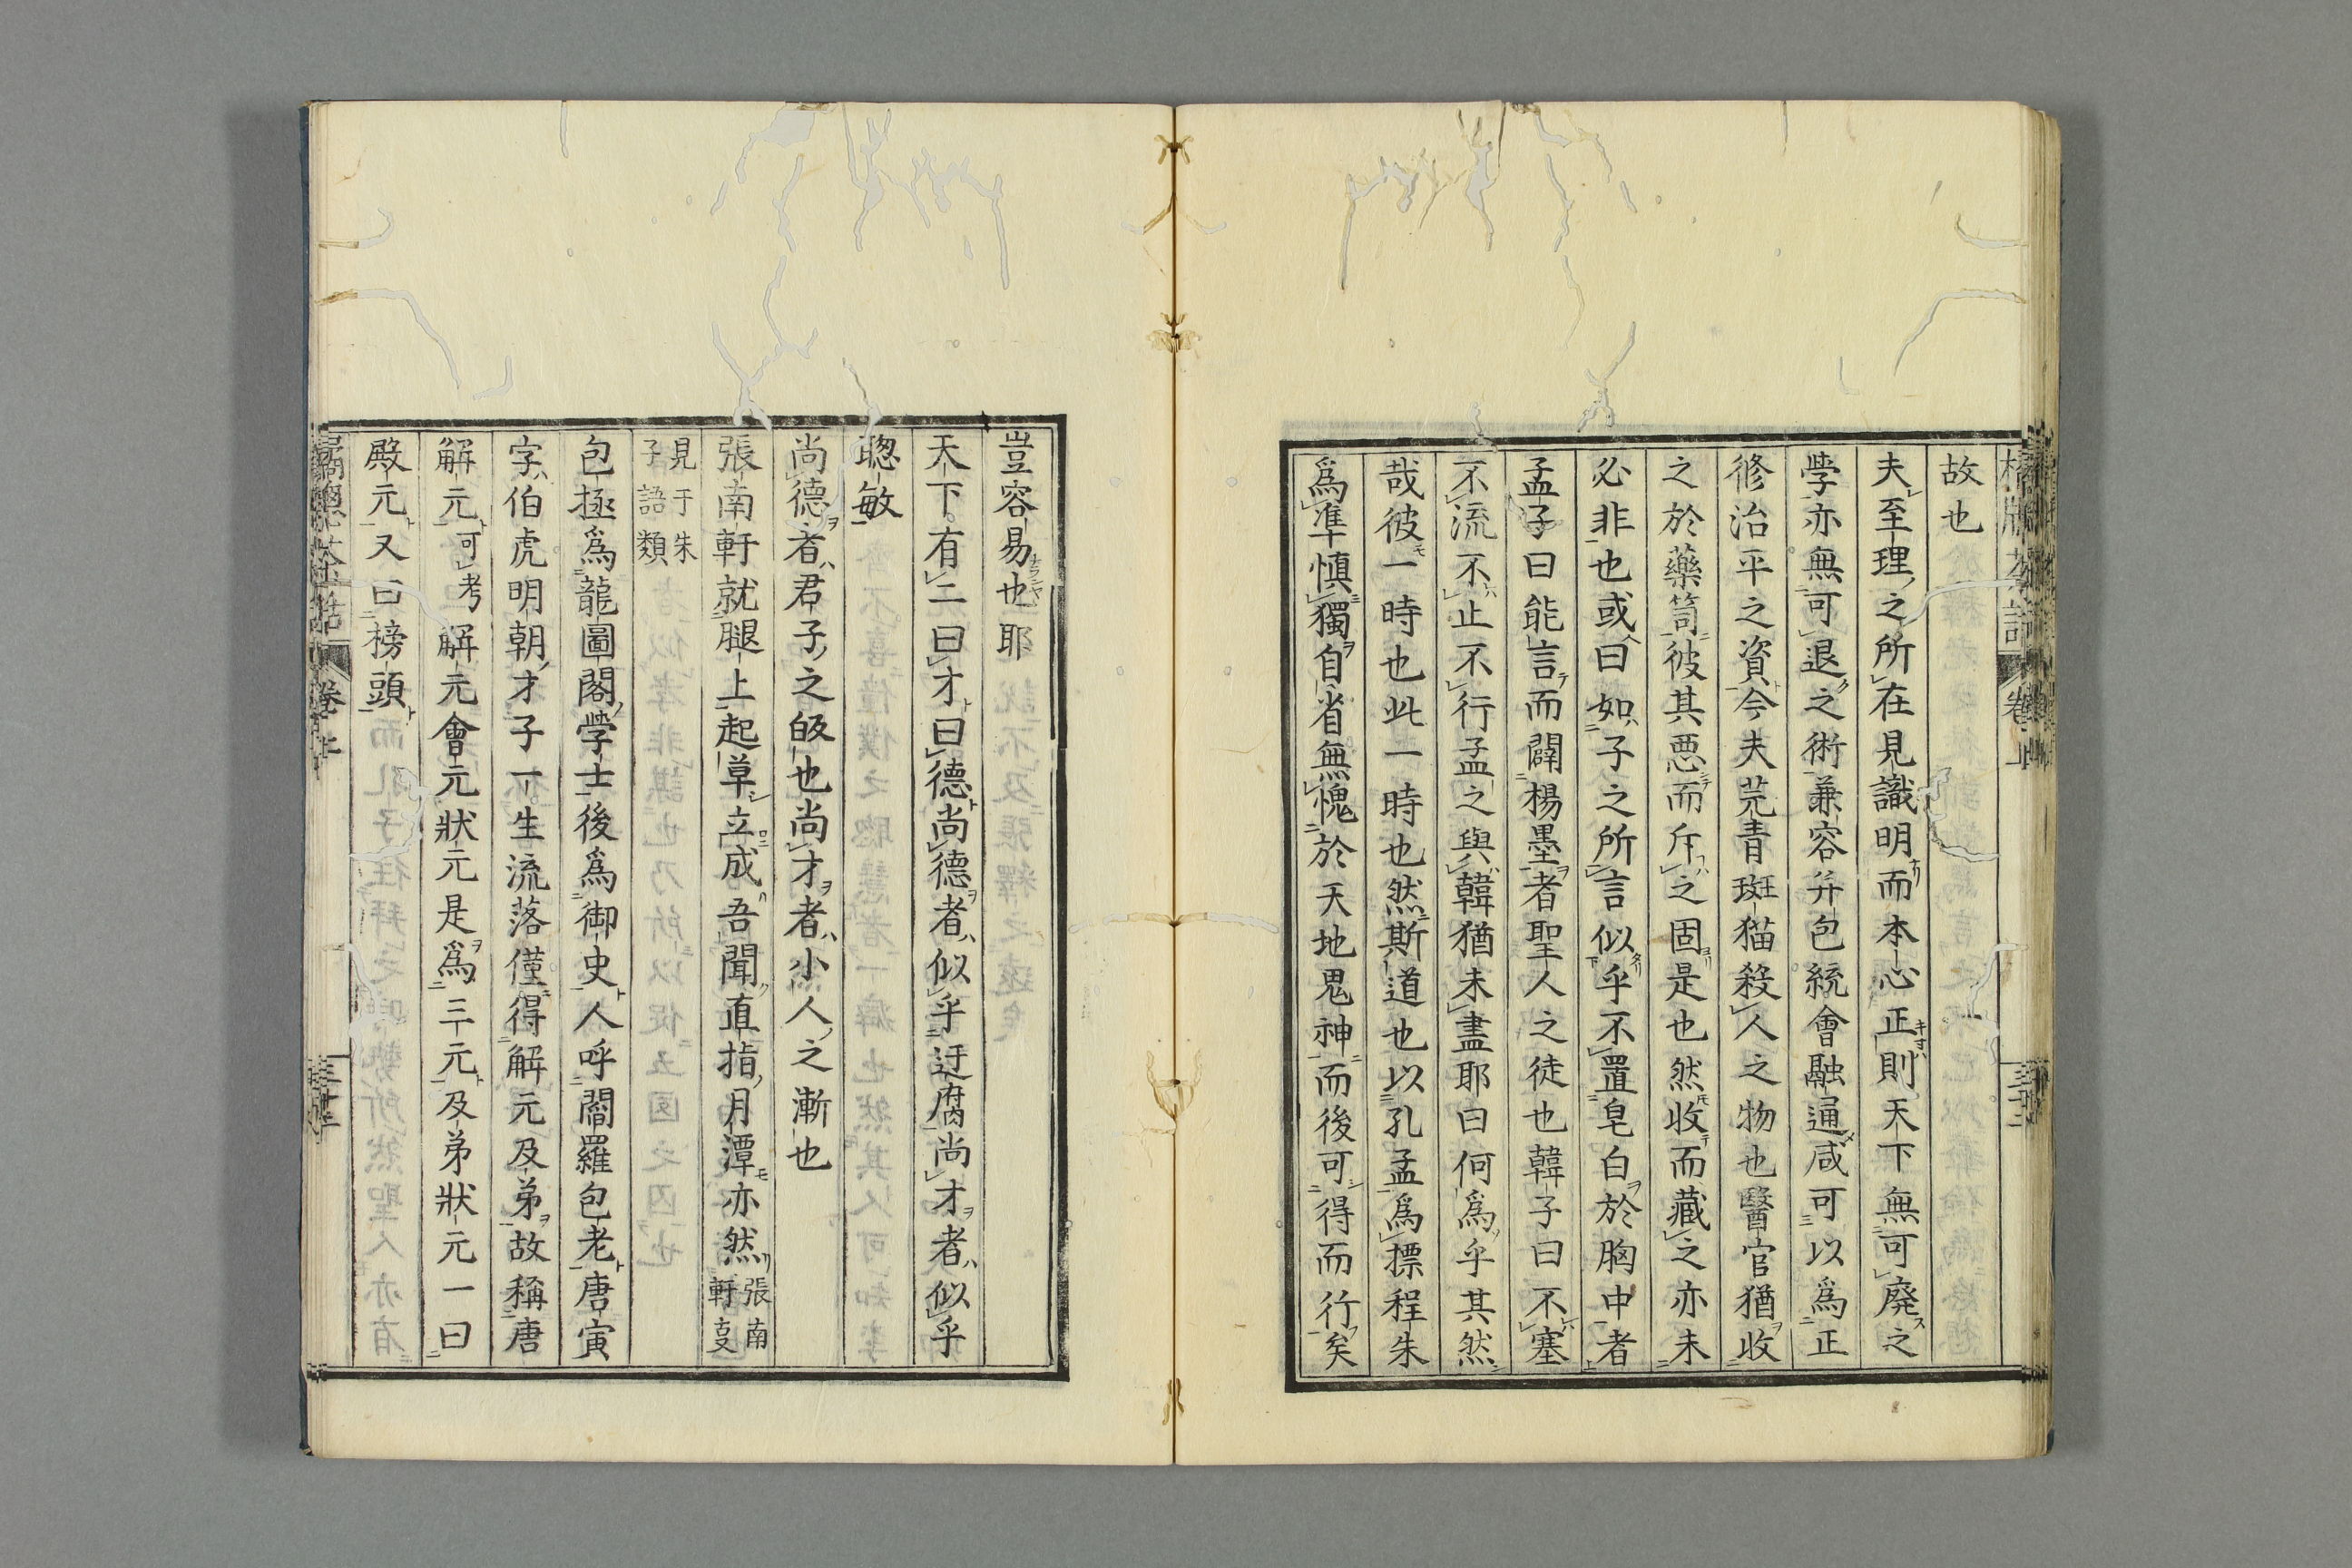 故也
夫至理之所在見識明而本心正則天下無可廢之
學亦無可退之術兼容幷包統會融通咸可以爲正
修治平之資今夫芫青斑猫殺人之物也醫官猶收
之於藥笥彼其悪而斥之固是也然收而藏之亦未
必非也或曰如子之所言似乎不置皂白於胸中者
孟子曰能言而闢楊墨者聖人之徒也韓子曰不塞
不流不止不行孟之與韓猶未盡耶曰何爲乎其然
哉彼一時也此一時也然斯道也以孔孟爲標程朱
爲準慎獨自省無愧於天地鬼神而後可得而行矣
豈容易也耶
天下有二曰才曰德尚德者似乎迂腐尚才者似乎
聰敏
尚德者君子之皈也尚才者小人之漸也
張南軒就腿上起草立成吾聞直指月潭亦然張南軒叓
見于朱子語類
包拯爲龍圖閣學士後爲御史人呼閻羅包老唐寅
字伯虎明朝才子一生流落僅得解元及弟故稱唐
解元可考解元會元狀元是爲三元及弟狀元一曰
殿元又曰榜頭
卷上